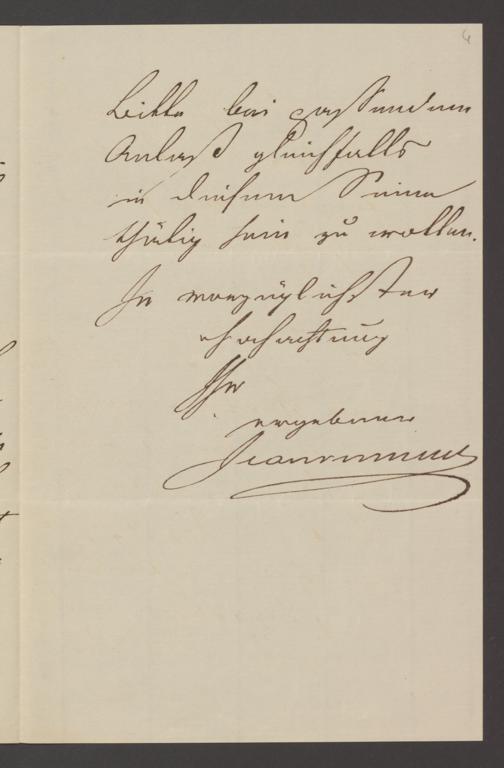 4
Bitte bei passendem
Anlaß gleichfalls
in diesem Sinne
thätig sein zu wollen.
In vorzüglichster
Hochachtung
Ihr
ergebener